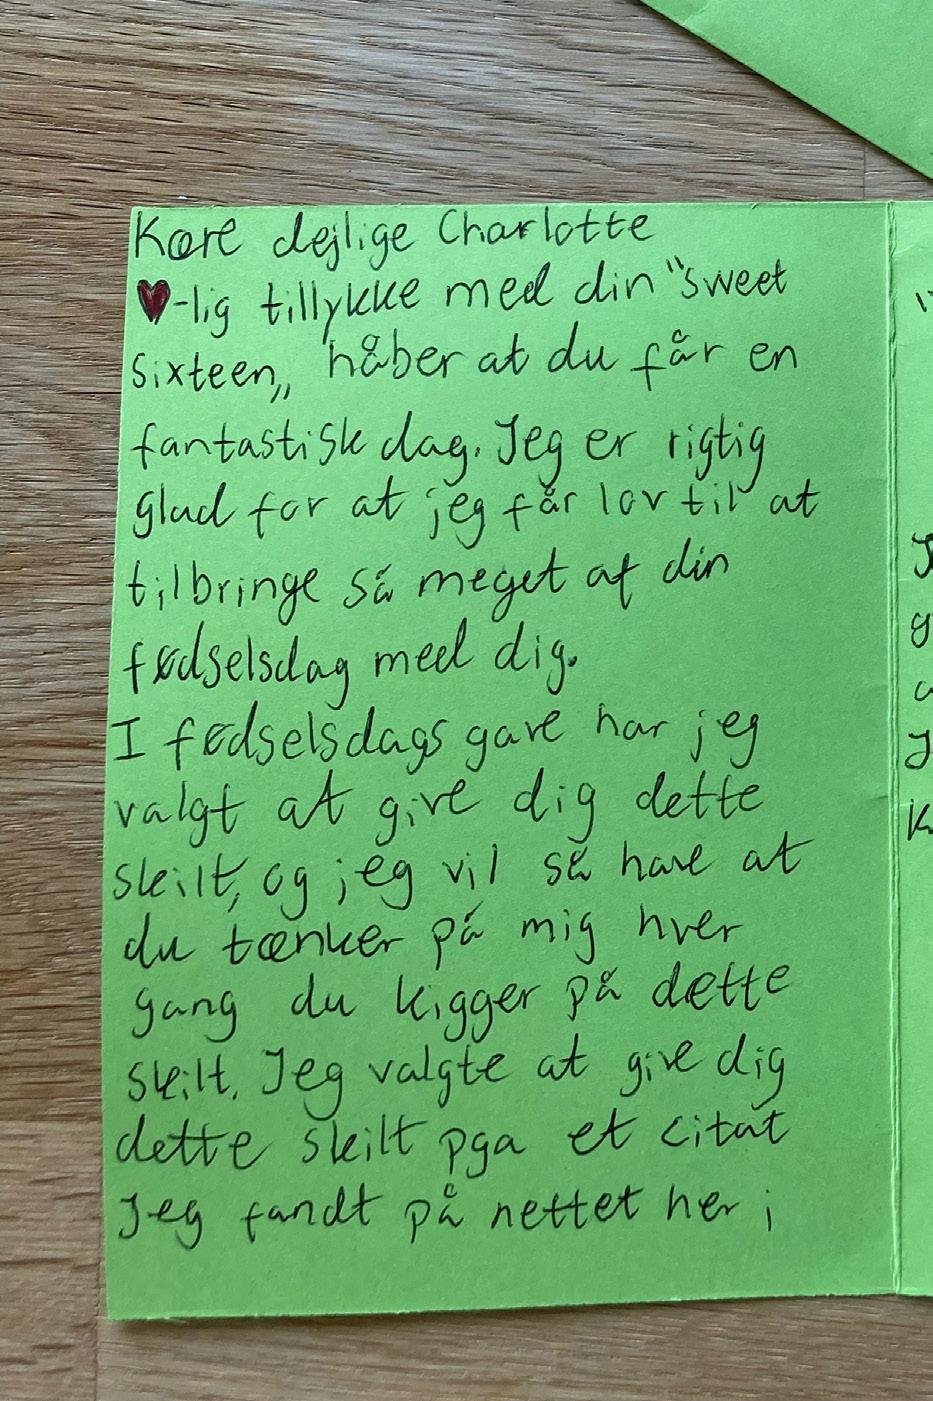 Kære dejlige Charlotte
♥-lig tillykke med din "sweet
sixteen„ håber at du får en
fantastisk dag. Jeg er rigtig
glad for at jeg får lov til at
tilbringe så meget af din
fødselsdag med dig.
I fødselsdags gave har jeg
valgt at give dig dette
skilt, og jeg vil så have at
du tænker på mig hver
gang du kigger på dette
skilt. Jeg valgte at give dig
dette skilt pga et citat
Jeg fandt på nettet her i